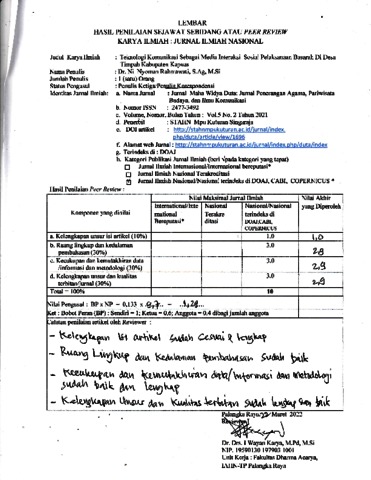 LEMBAR
HASIL PENILAIAN SEJAWAT SEBIDANG ATAU PEER REVIEW
KARYA ILMIAH : JURNAL ILMIAH NASIONAL
Judul Karya Ilmiah : Teknologi Komunikasi Sebagai Media Interaksi Sosial Pelaksanaan Basarah Di Desa
Timpah Kabupaten Kapuas
Nama Penulis : Dr. Ni Nyoman Rahmawati, S.Ag, M.Si
Jumlah Penulis : 1 (satu) Orang
Status Pengusul : Penulis Ketiga/Penulis Korespondensi
Identitas Jurnal Ilmiah : a. Nama Jurnal : Jurnal Maha Widya Duta: Jurnal Penerangan Agama, Pariwisata
Budaya, dan Ilmu Komunikasi
b. Nomor ISSN : 2477-3492
c. Volume, Nomor, Bulan Tahun : Vol.5 No. 2 Tahun 2021
d. Penerbit : STAHN Mpu Kuturan Singaraja
e. DOI artikel : http://stahnmpukuturan.ac.id/jurnal/index.
php/duta/article/view/1696
f. Alamat web Jurnal : http://stahnmpukuturan.ac.id/jurnal/index.php/duta/index
g. Terindeks di : DOAJ
h. Kategori Publikasi Jurnal Ilmiah (beri √pada kategori yang tepat)
Jurnal Ilmiah Internasional/Internasional bereputasi*
Jurnal Ilmiah Nasional Terakreditasi
Jurnal Ilmiah Nasional/Nasional terindeks di DOAJ, CABI, COPERNICUS *
Hasil Penilaian Peer Review :
Komponen yang dinilai
Nilai Maksimal Jurnal Ilmiah
Nilai Akhir yang Diperoleh
Internasional/Internasional Bereputasi*
Nasional Terakreditasi
Nasional/Nasional terindeks di DOAJ,CABI, COPERNICUS
a. Kelengkapan unsur isi artikel (10%) 1.0 1,0
b. Ruang lingkup dan kedalaman pembahasan (30%) 3.0 2,9
c. Kecukupan dan kemutakhiran data /informasi dan metodologi (30%) 3.0 2,9
d. Kelengkapan unsur dan kualitas terbitan/jurnal (30%) 3.0 2,9
Total = 100% 10
Nilai Pengusul : BP x NP = 0,133 x 9,7 = 1,29
Ket : Bobot Peran (BP) : Sendiri = 1; Ketua = 0,6; Anggota = 0.4 dibagi jumlah anggota
Catatan penilaian artikel oleh Reviewer :
- Kelengkapan Isi artikel sudah sesuai & lengkap
- Ruang Lingkup dan Kedalaman pembahasan sudah baik
- Kecukupan dan Kemutakhiran data/Informasi dan Metodologi
sudah baik dan lengkap
- Kelengkapan Unsur dan Kualitas terbitan sudah lengkap dan baik
Palangka Raya, Maret 2022
Reviewer
Dr. Drs. I Wayan Karya, M.Pd, M.Si
NIP. 19590130 197903 1001
Unit Kerja : Fakultas Dharma Acarya,
IAHN-TP Palangka Raya